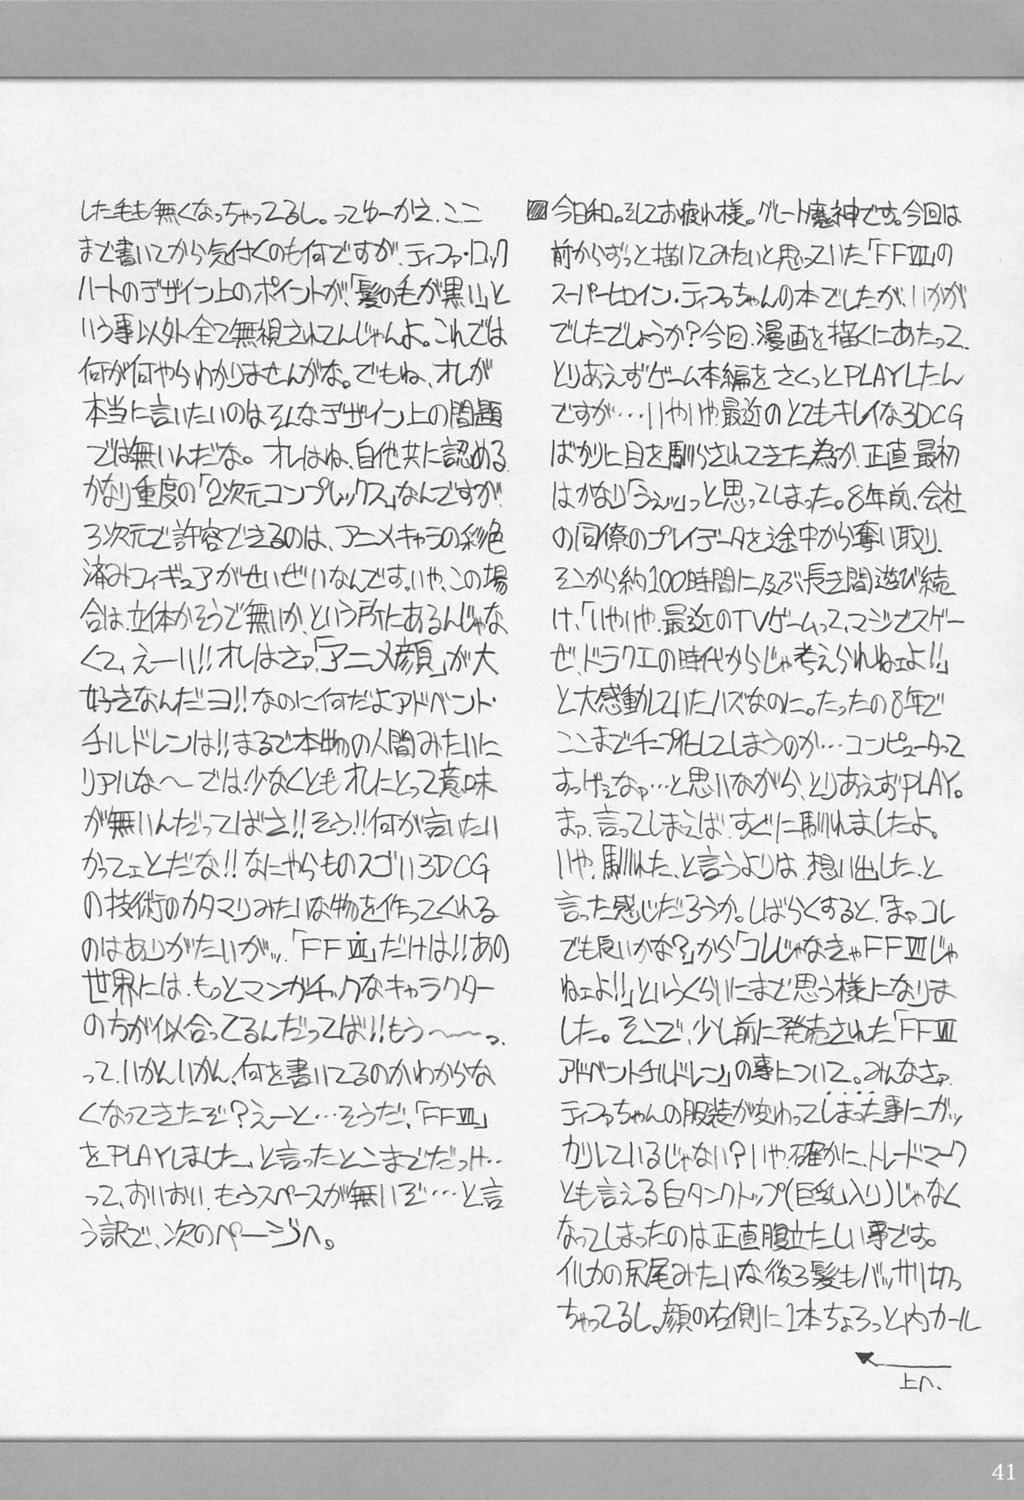 ▨今日和。そしてお疲れ様。グレート魔神です。今回は
前からずっと描いてみたいと思っていた「FFⅦ」の
スーパーヒロイン・ティファちゃんの本でしたが、いかが
でしたでしょうか?今回、漫画を描くにあたって、
とりあえずゲーム本編をさくっとPLAYしたん
ですが…いやいや、最近のとてもキレイな3DCG
ばかりに目を馴らされてきた為か、正直、最初
はかなり「うぇッ」っと思ってしまった。8年前、会社
の同僚のプレイデータを途中から奪い取り、
そこから約100時間に及ぶ長き間遊び続
け、「いやいや、最近のTVゲームって、マジでスゲー
ぜ、ドラクエの時代からじゃ考えられねェよ!!」
と大感動していたハズなのに。たったの8年で
ここまでチープ化してしまうのか…コンピュータって
すっげェなァ…と思いながら、とりあえずPLAY。
まァ、言ってしまえば、すぐに馴れましたよ。
いや、馴れた、と言うよりは、想い出した、と
言った感じだろうか。しばらくすると、「まァコレ
でも良いかな?」から「コレじゃなきゃFFⅦじゃ
ねェよ!!」というくらいにまで思う様になりま
した。そこで、少し前に発売された「FFⅦ
アドベントチルドレン」の事について。みんなさァ、
ティファちゃんの服装が変わってしまった事にガッ
カリしているじゃない?いや、確かに、トレードマーク
とも言える白タンクトップ(巨乳入り)じゃなく
なってしまったのは正直腹立たしい事です。
イルカの尻尾みたいな後ろ髪もバッサリ切っ
ちゃってるし。顔の右側に1本ちょろっと内カール
上へ、
した毛も無くなっちゃってるし。ってゆーかえ、ここ
まで書いてから気付くのも何ですが、ティファ・ロック
ハートのデザイン上のポイントが、「髪の毛が黒い」と
いう事以外全て無視されてんじゃんよ。これでは
何が何やらわかりませんがな。でもね、オレが
本当に言いたいのはそんなデザイン上の問題
では無いんだな。オレはね、自他共に認める、
かなり重度の「2次元コンプレックス」なんですが、
3次元で許容できるのは、アニメキャラの彩色
済みフィギュアがせいぜいなんです。いや、この場
合は、立体かそうで無いか、という所にあるんじゃな
くて、えーい!!オレはさァ、「アニメ顔」が大
好きなんだヨ!!なのに何だよアドベント・
チルドレンは!!まるで本物の人間みたいに
リアルな〜では!少なくともオレにとって意味
が無いんだってばさ!!そう!!何が言いたい
かってェとだな!!なにやらものスゴい3DCG
の技術のカタマリみたいな物を作ってくれる
のはありがたいがッ、「FFⅦ」だけは!!あの
世界には、もっとマンガチックなキャラクター
の方が似合ってるんだってば!!もう〜〜っ、
って、いかんいかん、何を書いてるのかわからな
くなってきたぞ?えーと…そうだ、「FFⅦ」
をPLAYしました、と言ったとこまでだっけ…
って、おいおい、もうスペースが無いぞ…と言
う訳で、次のページへ。
41